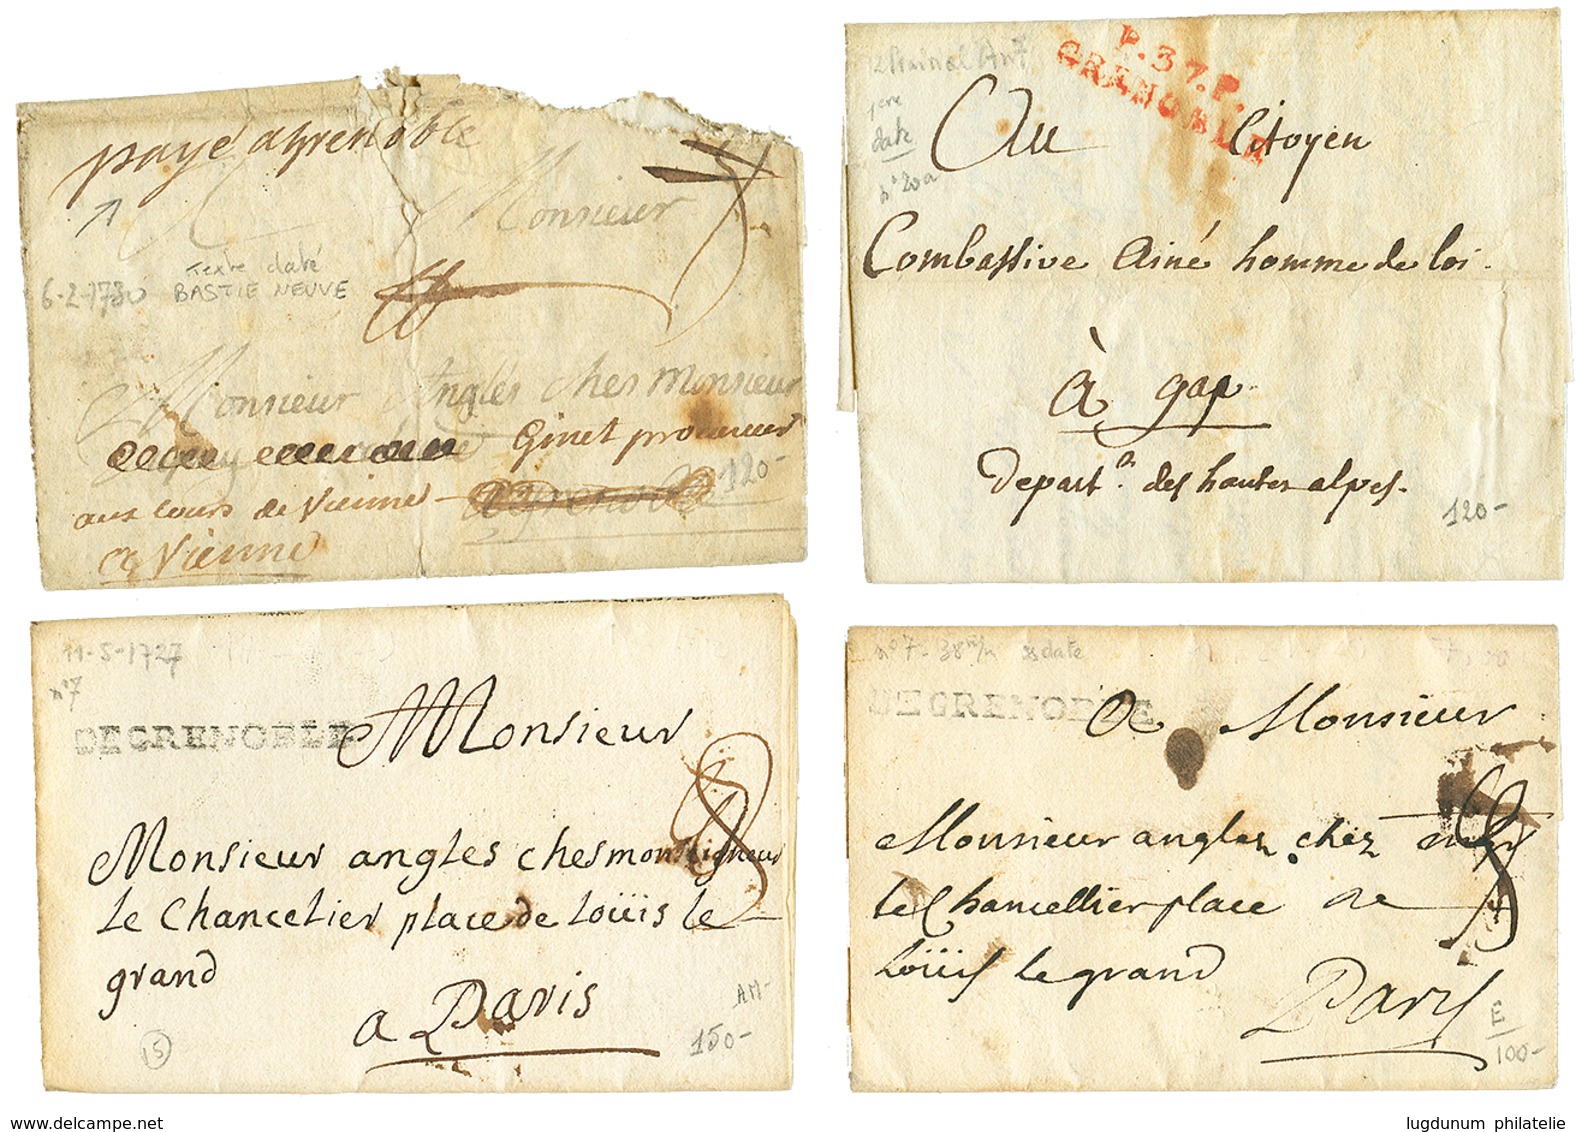 paye a grenoble
Monsieur
Texte daté
6-2-1730 BASTIE NEUVE
Monsieur Angles ches monsieur
Ginet procureur
aux cours de Vienne
a grenoble
120-
a Vienne
P.37.P.
GRENOBLE
12 Prairial An 7
1ere
date
n°20a
Au Citoyen
Combassive Ainé homme de loi.
À gap
depart.n des hautes alpes.
120-
11-5-1727
n°7
DE GRENOBLE
Monsieur
8
Monsieur angles ches monseigneur
le Chancelier place de Loüis le
grand
a Paris
AM-
15
150-
n°7 - 38 m/m ss date
DE GRENOBLE
A Monsieur
8
Monsieur angles chez mgr
le Chancellier place de
Loüis le grand
Paris
E
100-
www.delcampe.net
lugdunum philatelie